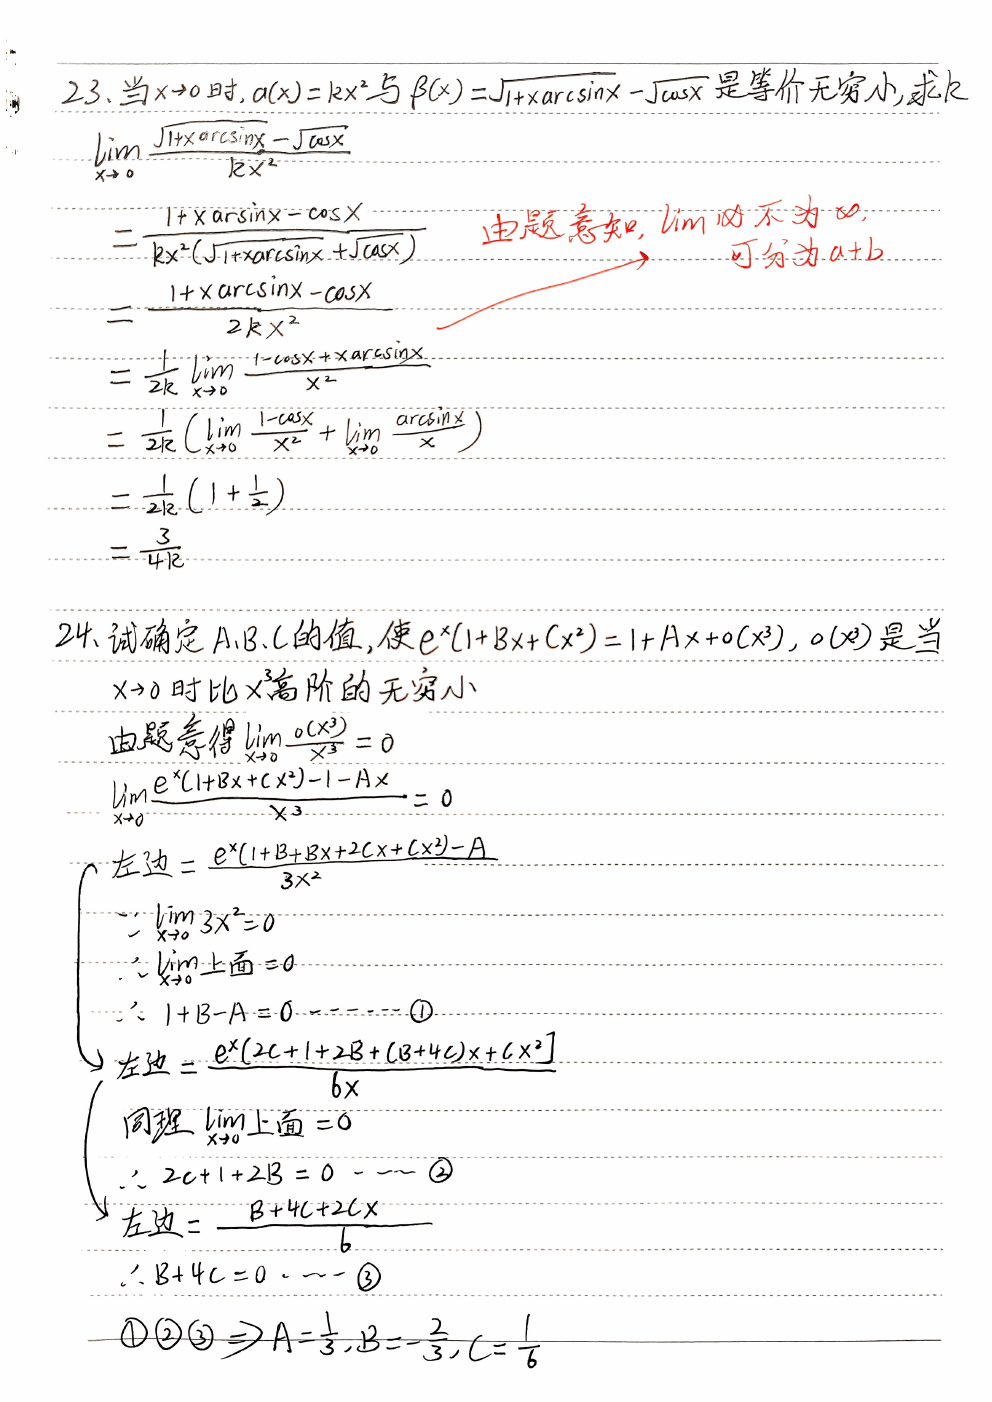 23、当x→0时, α(x)=kx²与β(x)=√(1+xarcsinx)-√(cosx)是等价无穷小,求k
lim x→0 (√(1+xarcsinx)-√(cosx))/(kx²)
= (1+xarsinx-cosx)/(kx²(√(1+xarcsinx)+√(cosx)))
由题意知, lim 不为∞.
可分为a+b
= (1+xarcsinx-cosx)/(2kx²)
= 1/(2k) lim x→0 (1-cosx+xarcsinx)/(x²)
= 1/(2k) (lim x→0 (1-cosx)/(x²) + lim x→0 (arcsinx)/x)
= 1/(2k) (1+1/2)
= 3/(4k)
24、试确定A.B.C的值,使eˣ(1+Bx+Cx²)=1+Ax+o(x³), o(x³)是当
x→0时比x³高阶的无穷小
由题意得 lim x→0 o(x³)/x³ = 0
lim x→0 (eˣ(1+Bx+Cx²)-1-Ax)/x³ = 0
左边 = (eˣ(1+B+Bx+2Cx+Cx²)-A)/(3x²)
∵ lim x→0 3x²=0
∴ lim x→0 上面=0
∴ 1+B-A=0 ------ ①
左边 = (eˣ[2C+1+2B+(B+4C)x+Cx²])/(6x)
同理 lim x→0 上面=0
∴ 2C+1+2B=0 ---- ②
左边 = (B+4C+2Cx)/6
∴ B+4C=0 ---- ③
①②③ ⇒ A=1/3, B=-2/3, C=1/6